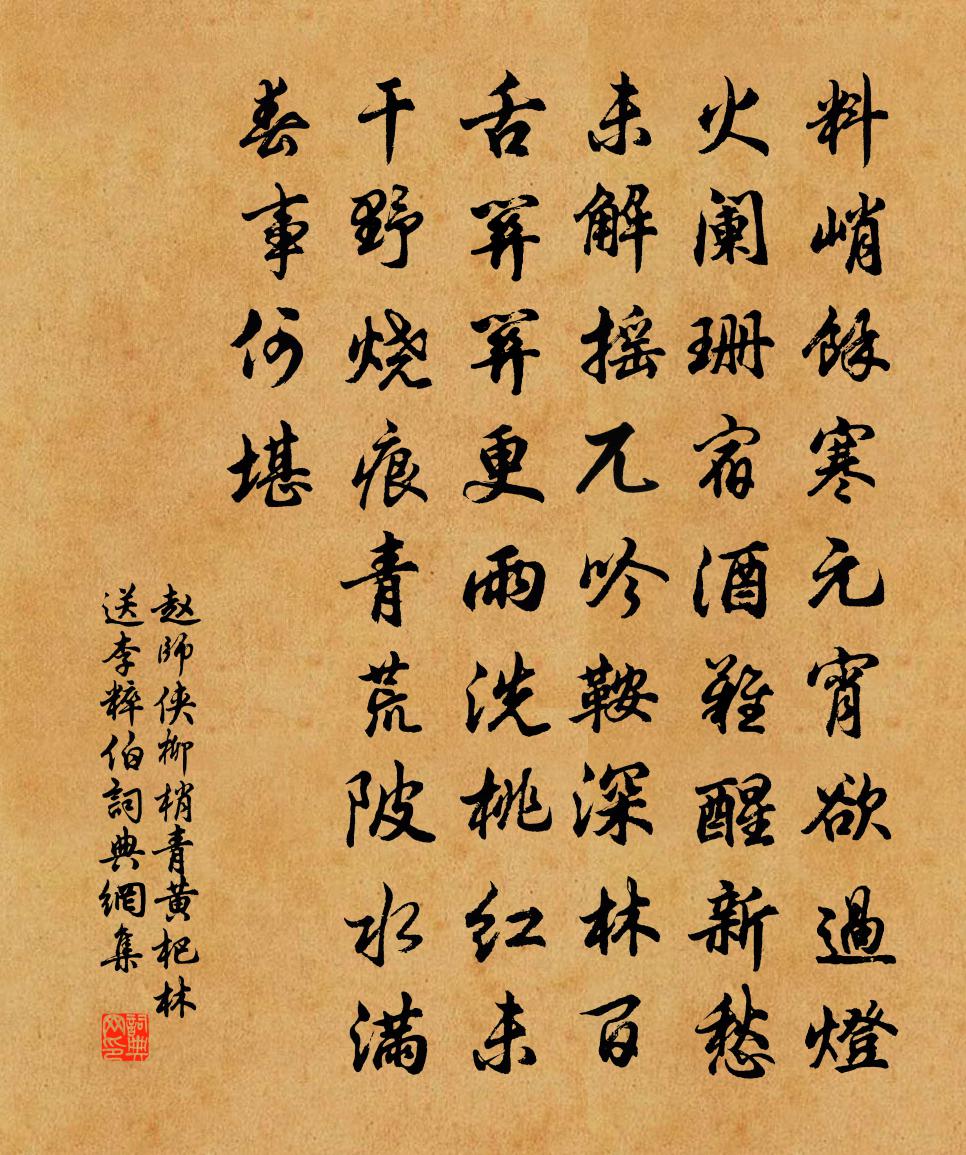 料峭餘寒元宵欲過燈
火阑珊宿酒難醒新愁
未解摇兀吟鞍深林百
舌關關更雨洗桃红未
干野烧痕青荒陂水满
春事何堪
赵師侠柳梢青黄杷林
送李粹伯詞典網集
詞典網印